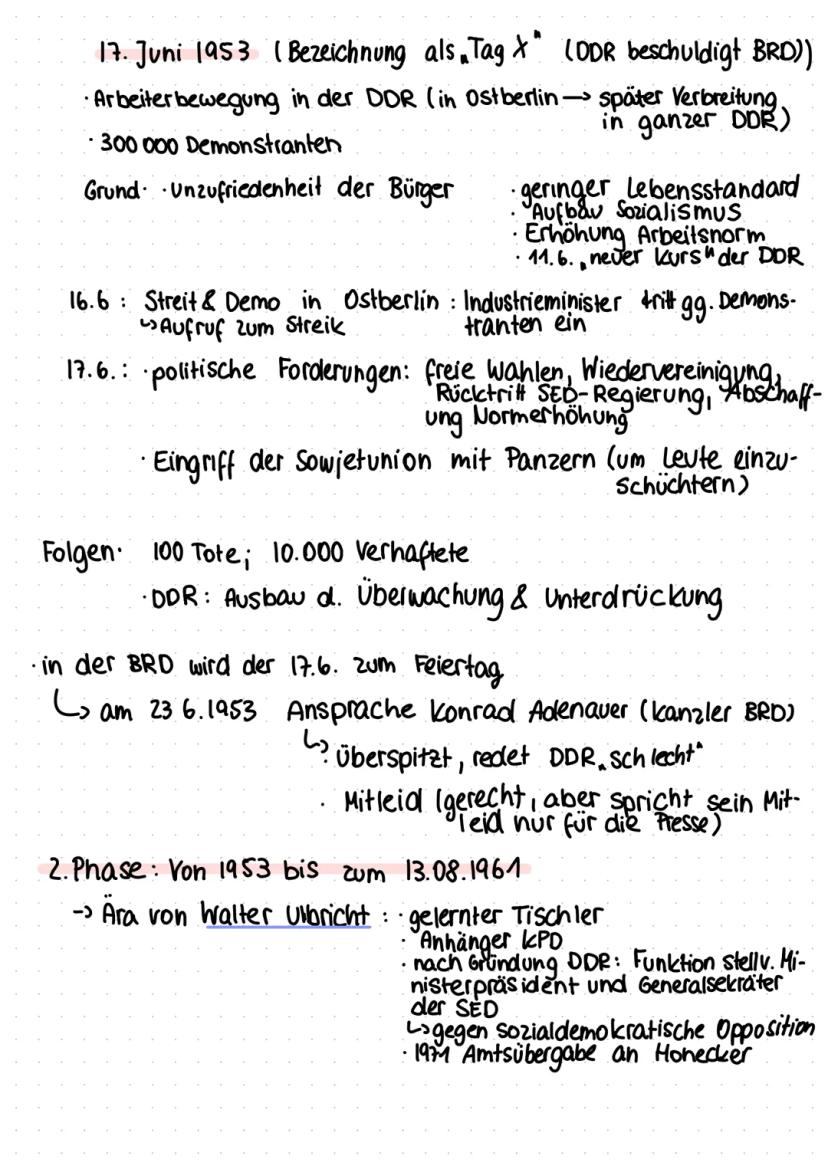 17. Juni 1953 (Bezeichnung als „Tag X" (DDR beschuldigt BRD))
· Arbeiterbewegung in der DDR (in Ostberlin → später Verbreitung
in ganzer DDR)
· 300 000 Demonstranten
Grund· · Unzufriedenheit der Bürger
· geringer Lebensstandard
· Aufbau Sozialismus
· Erhöhung Arbeitsnorm
· 11.6. „neuer Kurs" der DDR
16.6 : Streit & Demo in Ostberlin : Industrieminister tritt gg. Demons-
↳ Aufruf zum Streik
tranten ein
17.6. : · politische Forderungen: freie Wahlen, Wiedervereinigung,
Rücktritt SED-Regierung, Abschaff-
ung Normerhöhung
· Eingriff der Sowjetunion mit Panzern (um Leute einzu-
schüchtern)
Folgen· 100 Tote; 10.000 Verhaftete
· DDR: Ausbau d. Überwachung & Unterdrückung
· in der BRD wird der 17.6. zum Feiertag
↳ am 23 6.1953 Ansprache Konrad Adenauer (Kanzler BRD)
↳ · überspitzt, redet DDR „schlecht"
· Mitleid (gerecht, aber spricht sein Mit-
leid nur für die Presse)
2. Phase: Von 1953 bis zum 13.08.1961
-> Ära von Walter Ulbricht : · gelernter Tischler
· Anhänger KPD
· nach Gründung DDR: Funktion stellv. Mi-
nisterpräsident und Generalsekräter
der SED
↳ gegen sozialdemokratische Opposition
· 1971 Amtsübergabe an Honecker